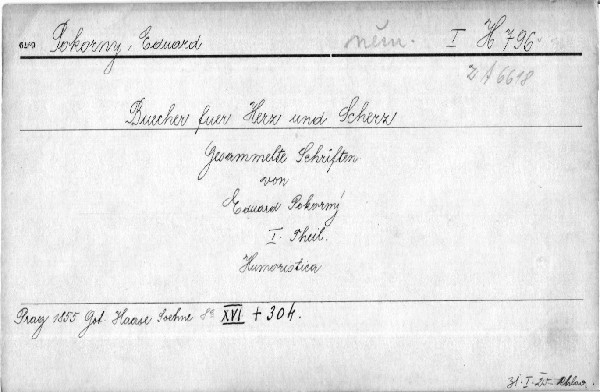 Pokorny, Eduard něm. I H 796
2 A 6618
Buecher fuer Herz und Scherz
Gesammelte Schriften
von
Eduard Pokorný
I. Theil.
Humoristica
Prag 1855 Got. Haase Soehne 8° XVI + 304.